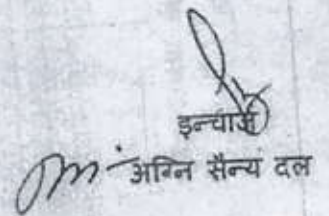 इन्चार्ज
अग्नि सैन्य दल